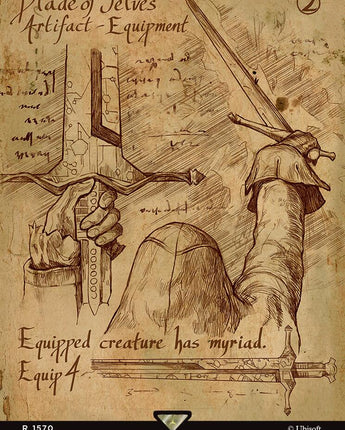 Blade of Selves
2
Artifact - Equipment
Equipped creature has myriad.
Equip 4
R 1570
© Ubisoft